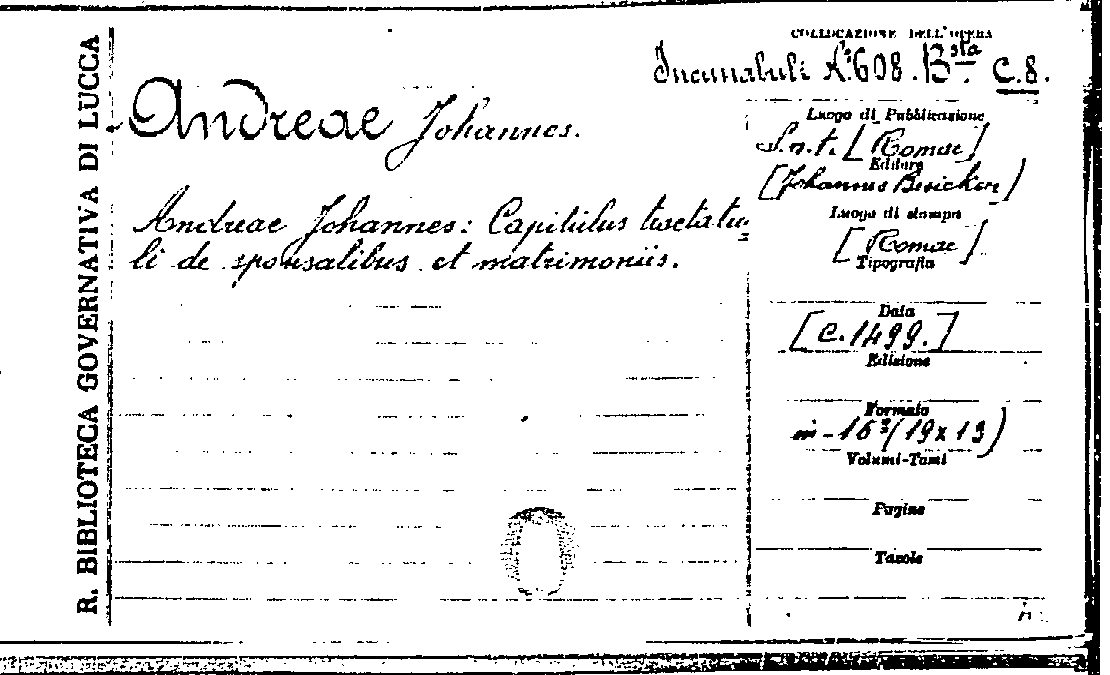 R. BIBLIOTECA GOVERNATIVA DI LUCCA
COLLOCAZIONE DELL'OPERA
Incunabuli N.º 608. B.sta C.8.
Andreae Johannes.
Andreae Johannes: Capitulus tractatu
li de sponsalibus et matrimoniis.
Luogo di Pubblicazione
S.n.t. [Romae]
Editore
[Johannus Besicken]
Luogo di stampa
[Romae]
Tipografia
Data
[c. 1499.]
Edizione
Formato
in-16º (19x13)
Volumi-Tomi
Pagine
Tavole